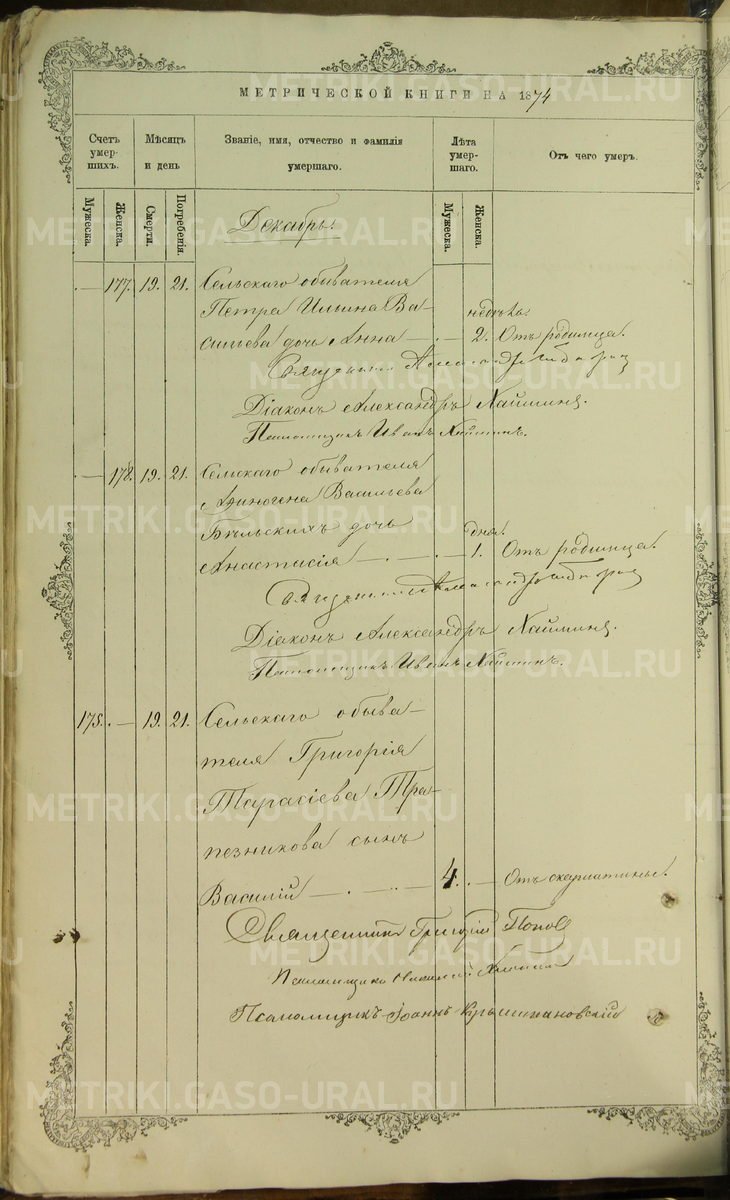 МЕТРИЧЕСКОЙ КНИГИ НА 1874
Счетъ умер-шихъ.
Мѣсяцъ и день
Званіе, имя, отчество и фамилія умершаго.
Лѣта умер-шаго.
Отъ чего умеръ.
Мужеска.
Женска.
Смерти.
Погребенія.
Мужеска.
Женска.
Декабрь.
— 177. 19. 21. Сельскаго обывателя
Петра Ильина Ва-
недѣль
сильева дочь Анна — 2. Отъ родимца.
Священникъ
Діаконъ Александръ Наймшинъ.
Псаломщикъ Иванъ
— 178. 19. 21. Сельскаго обывателя
Аѳиногена Васильева
Бѣльскихъ дочь
дня.
Анастасія — 1. Отъ родимца.
Священникъ
Діаконъ Александръ
Псаломщикъ Иванъ
175. — 19. 21. Сельскаго обыва-
теля Григорія
Тарасіева Тра-
пезникова сынъ
Василій — 4. — Отъ скарлатины.
Священникъ Григорій Поповъ
Псаломщикъ
Псаломщикъ Іоаннъ
METRIKI.GASO-URAL.RU